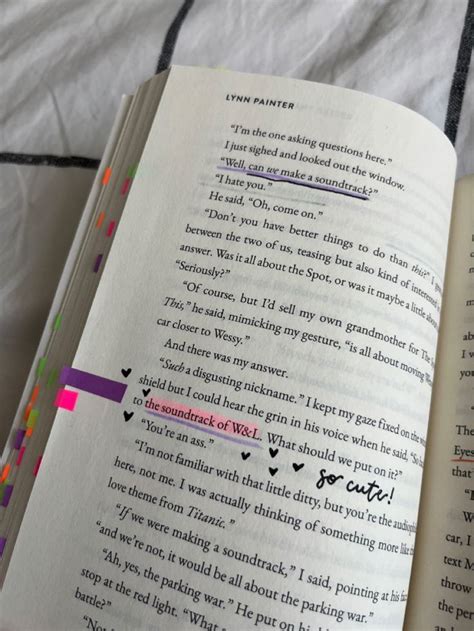 LYNN PAINTER
"I'm the one asking questions here."
I just sighed and looked out the window.
"Well, can we make a soundtrack?"
"I hate you."
He said, "Oh, come on."
"Don't you have better things to do than this?" I
between the two of us, teasing but also kind of interested
answer. Was it all about the Spot, or was it maybe a little
"Seriously?"
"Of course, but I'd sell my own grandmother for The
This," he said, mimicking my gesture, "is all about moving
car closer to Wessy."
And there was my answer.
"Such a disgusting nickname." I kept my gaze fixed on the
shield but I could hear the grin in his voice when he said, "So
to the soundtrack of W&L. What should we put on it?"
"You're an ass."
so cute!
"I'm not familiar with that little ditty, but you're the
here, not me. I was actually thinking of something more like
love theme from Titanic."
"If we were making a soundtrack," I said, pointing at his
"and we're not, it would be all about the parking war."
"Ah, yes, the parking war." He put on his
stop at the red light. "What would
battle?"
Eyes
car, I
text M
There
the per
and